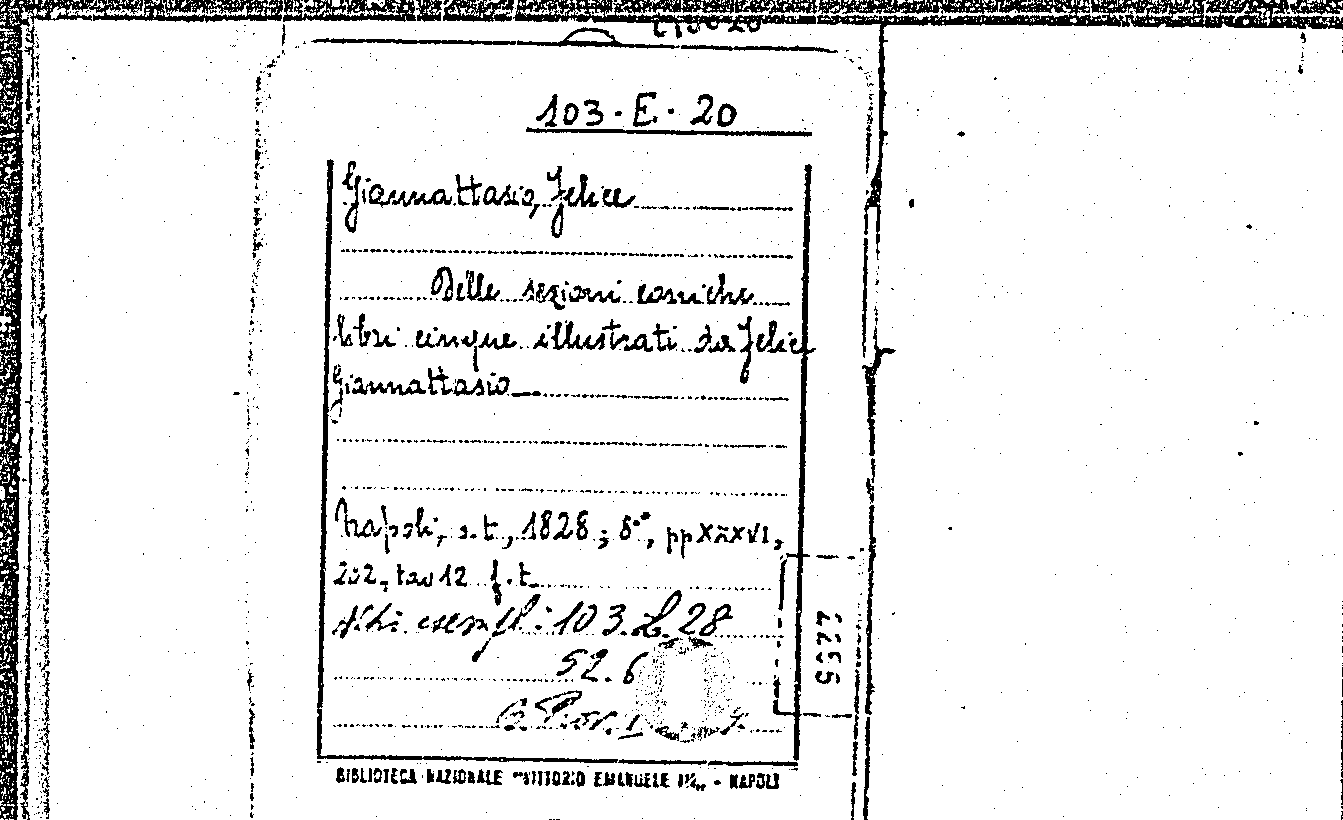 103·E·20
Giannattasio, Felice
Delle sezioni coniche
libri cinque illustrati da Felice
Giannattasio
Napoli, s.t., 1828; 8°, pp XXXVI,
202, tav 12 f.t.
Altri esempl: 103.L.28
52.6
BIBLIOTECA NAZIONALE "VITTORIO EMANUELE III„ - NAPOLI